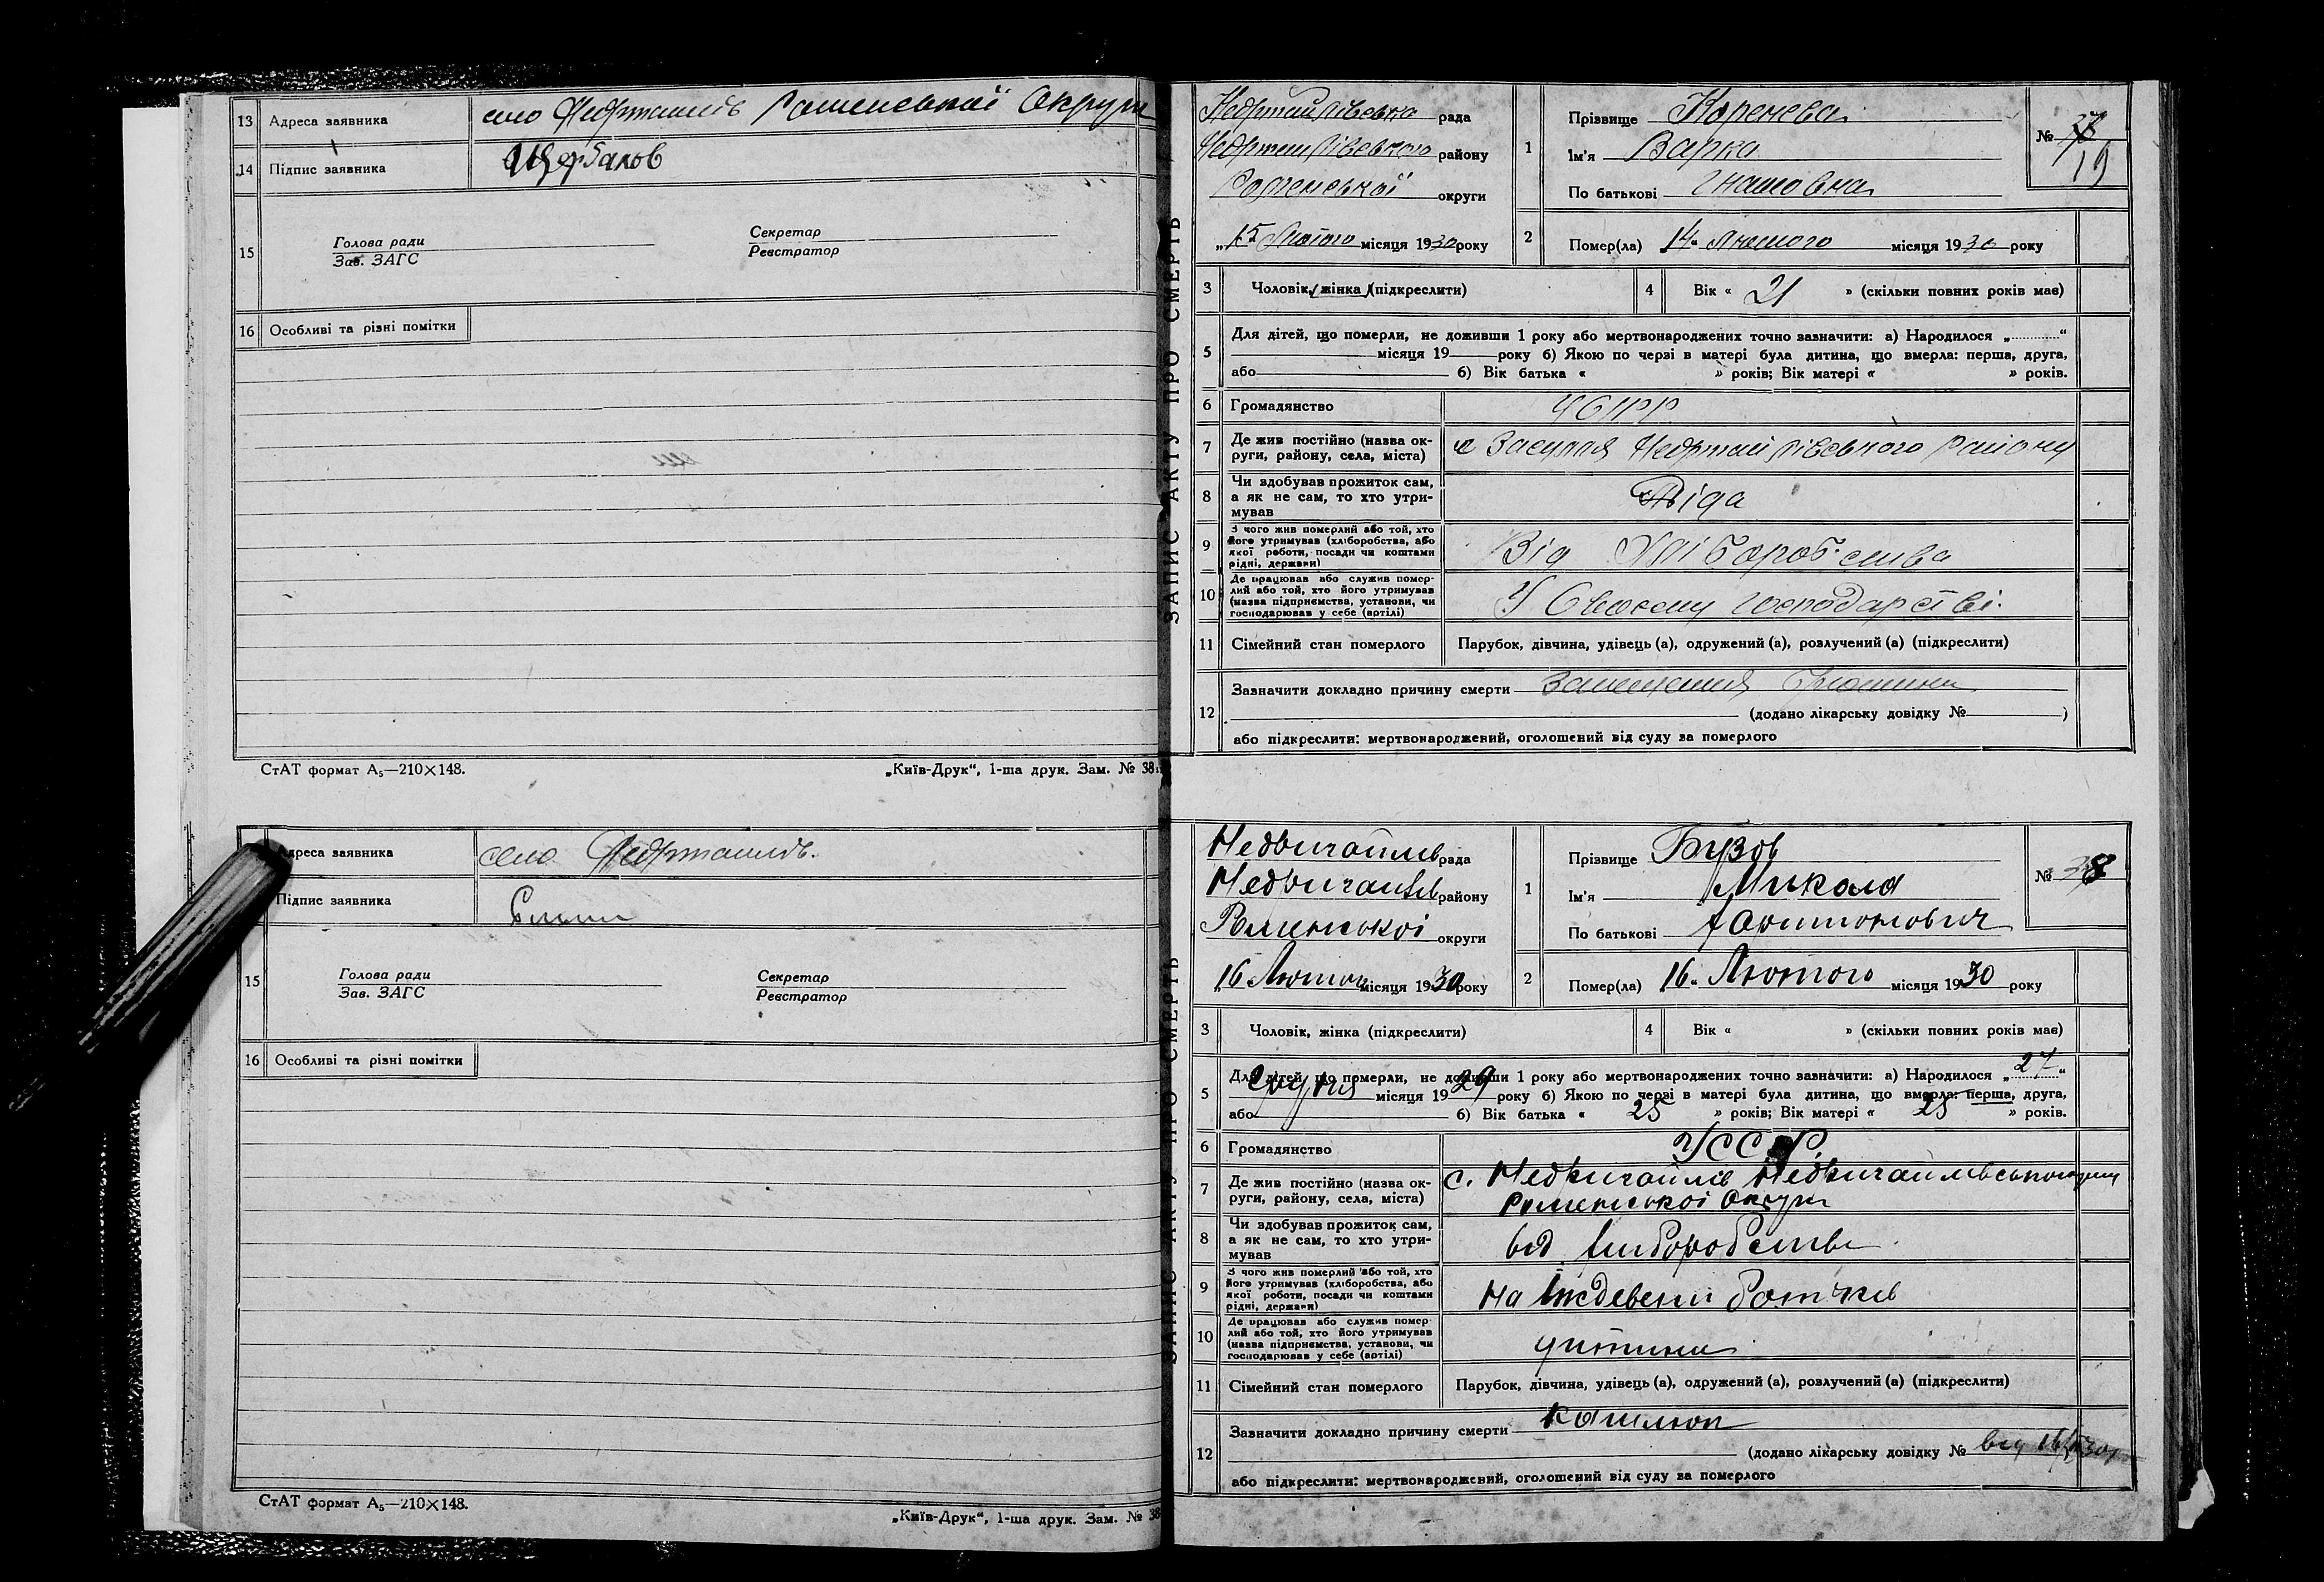 13 Адреса заявника село Недригайлів Роменської Округи
14 Підпис заявника Щербаков
15
Голова ради
Зав. ЗАГС
Секретар
Реєстратор
16 Особливі та різні помітки
СтАТ формат А₅—210×148. „Київ-Друк“, 1-ша друк. Зам. № 38
Адреса заявника село Недригайлів.
Підпис заявника
15
Голова ради
Зав. ЗАГС
Секретар
Реєстратор
16 Особливі та різні помітки
СтАТ формат А₅—210×148. „Київ-Друк“, 1-ша друк. Зам. № 38
ЗАПИС АКТУ ПРО СМЕРТЬ
Недригайлівська рада
Недригайлівського району
Роменської округи
„15 Лютого місяця 1930 року
1 Прізвище Коренева
Ім'я Варка
По батькові Гнатовна
№ 19
2 Помер(ла) 14 Лютого місяця 1930 року
3 Чоловік, жінка (підкреслити) 4 Вік « 21 » (скільки повних років має)
5 Для дітей, що померли, не доживши 1 року або мертвонароджених точно зазначити: а) Народилося „ “
місяця 19 року б) Якою по черзі в матері була дитина, що вмерла: перша, друга,
або б) Вік батька « » років; Вік матері « » років.
6 Громадянство УСРР
7 Де жив постійно (назва округи, району, села, міста) с Засулля Недригайлівського району
8 Чи здобував прожиток сам, а як не сам, то хто утримував Діда
9 З чого жив померлий або той, хто його утримував (хліборобства, або якої роботи, посади чи коштами рідні, держави) Від Хліборобства
10 Де працював або служив померлий або той, хто його утримував (назва підприємства, установи, чи господарював у себе (артілі) У Своєму господарстві.
11 Сімейний стан померлого Парубок, дівчина, удівець (а), одружений (а), розлучений (а) (підкреслити)
12 Зазначити докладно причину смерти Запалення
(додано лікарську довідку № )
або підкреслити: мертвонароджений, оголошений від суду за померлого
ЗАПИС АКТУ ПРО СМЕРТЬ
Недригайлів рада
Недригайлів району
Роменської округи
„16 Лютого місяця 1930 року
1 Прізвище Бузов
Ім'я Микола
По батькові Харитонович
№ 8
2 Помер(ла) „16“ Лютого місяця 1930 року
3 Чоловік, жінка (підкреслити) 4 Вік « » (скільки повних років має)
5 Для дітей, що померли, не доживши 1 року або мертвонароджених точно зазначити: а) Народилося „27“
Грудня місяця 1929 року б) Якою по черзі в матері була дитина, що вмерла: перша, друга,
або б) Вік батька « 25 » років; Вік матері « 25 » років.
6 Громадянство УССР
7 Де жив постійно (назва округи, району, села, міста) с. Недригайлів Недригайлівського
Роменської Округи
8 Чи здобував прожиток сам, а як не сам, то хто утримував від хліборобства
9 З чого жив померлий або той, хто його утримував (хліборобства, або якої роботи, посади чи коштами рідні, держави) На батьків
10 Де працював або служив померлий або той, хто його утримував (назва підприємства, установи, чи господарював у себе (артілі) дитина
11 Сімейний стан померлого Парубок, дівчина, удівець (а), одружений (а), розлучений (а) (підкреслити)
12 Зазначити докладно причину смерти кашлюк
(додано лікарську довідку № від 16/II 30р
або підкреслити: мертвонароджений, оголошений від суду за померлого